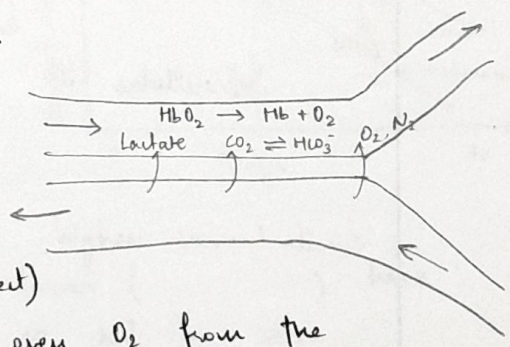 HbO₂ → Hb + O₂
Lactate CO₂ ⇌ HCO₃⁻ O₂, N₂
ect)
even O₂ from the